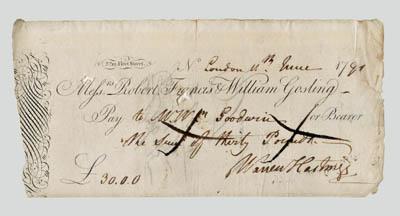 Fleet Street
No London 11th June 1791
Messrs Robert Francis & William Gosling
Pay to Mr Wm Goodwin or Bearer
the Sum of thirty Pounds
£ 30.0.0
Warren Hastings